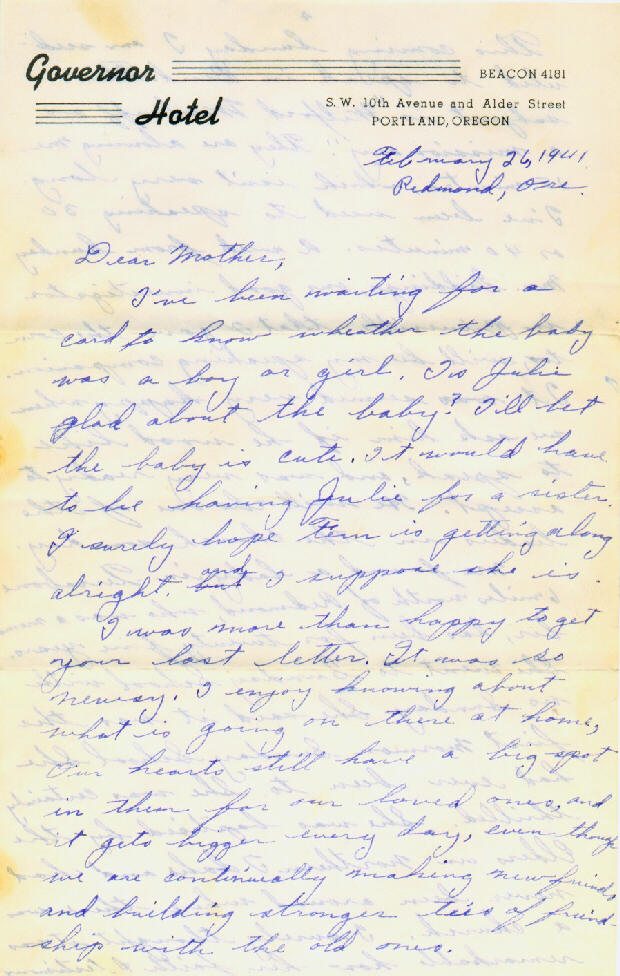 Governor
Hotel
BEACON 4181
S. W. 10th Avenue and Alder Street
PORTLAND, OREGON
February 26, 1941
Redmond, Ore.
Dear Mother,
I've been waiting for a
card to know wheather the baby
was a boy or girl. Is Julie
glad about the baby? I'll bet
the baby is cute. It would have
to be having Julie for a sister.
I surely hope Fern is getting along
alright, but and I suppose she is.
I was more than happy to get
your last letter. It was so
newsy. I enjoy knowing about
what is going on there at home,
Our hearts still have a big spot
in them for our loved ones, and
it gets bigger every day, even though
we are continually making new friends
and building stronger ties of friend-
ship with the old ones.